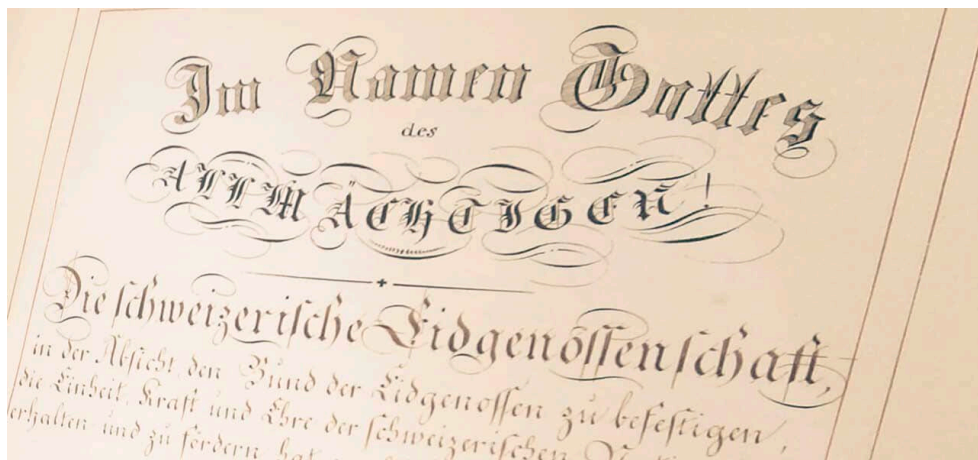 Im Namen Gottes
des
ALLMÄCHTIGEN!
Die schweizerische Eidgenossenschaft,
in der Absicht, den Bund der Eidgenossen zu befestigen,
die Einheit, Kraft und Ehre der schweizerischen
erhalten und zu fördern, hat